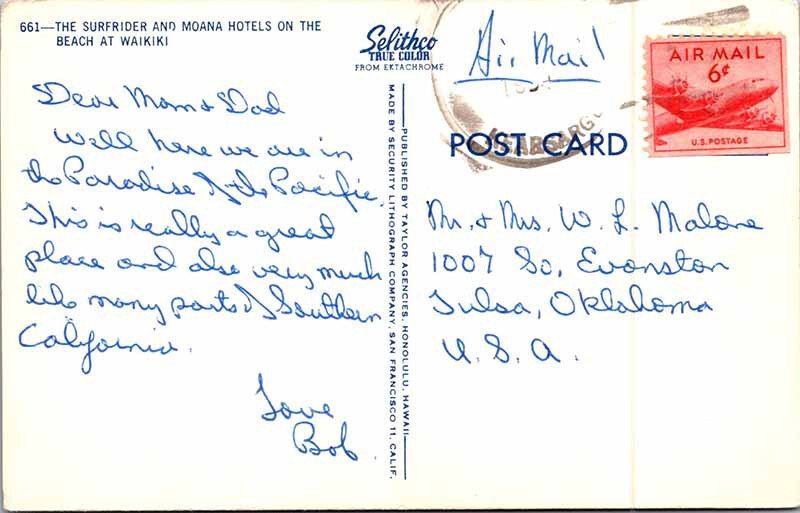 661—THE SURFRIDER AND MOANA HOTELS ON THE
BEACH AT WAIKIKI
Selithco
TRUE COLOR
FROM EKTACHROME
Dear Mom & Dad
Well here we are in
the Paradise of the Pacific.
This is really a great
place and also very much
like many parts of Southern
California.
Love
Bob.
PUBLISHED BY TAYLOR AGENCIES, HONOLULU, HAWAII
MADE BY SECURITY LITHOGRAPH COMPANY, SAN FRANCISCO 11, CALIF.
Air Mail
POST CARD
AIR MAIL
6¢
U.S. POSTAGE
Mr. & Mrs. W. L. Malone
1007 So. Evanston
Tulsa, Oklahoma
U. S. A.